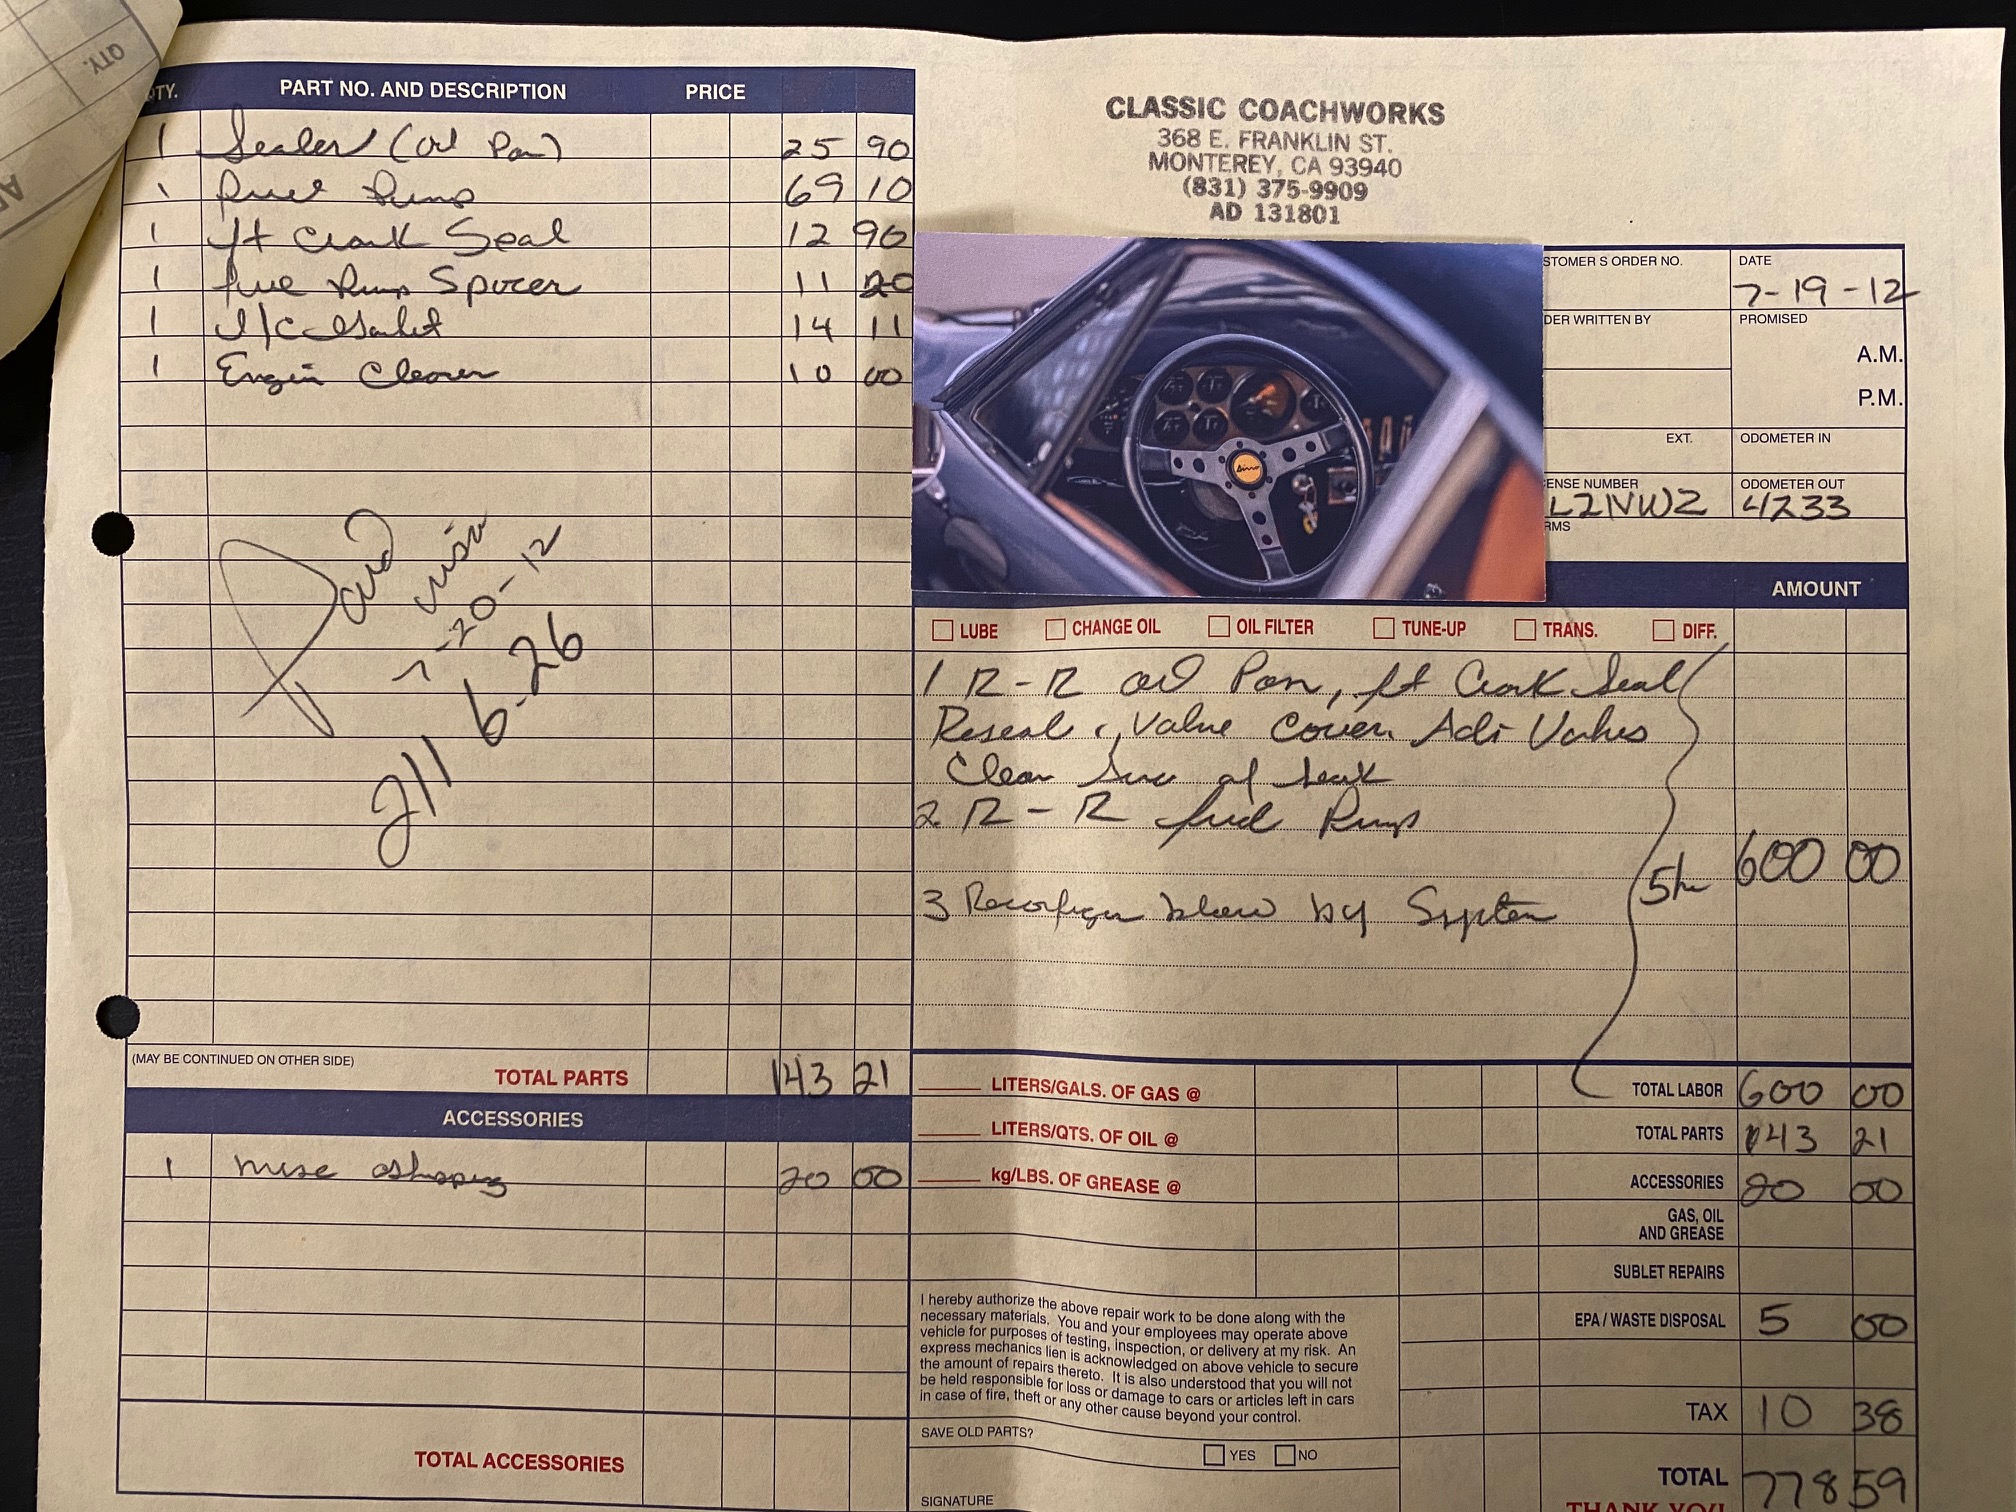 QTY.
QTY. PART NO. AND DESCRIPTION PRICE
1 Sealer (Oil Pan) 25 90
1 fuel Pump 69 10
1 ft Crank Seal 12 90
1 fuel Pump Spacer 11 20
1 V/C Gasket 14 11
1 Engin Cleaner 10 00
Paid
visa
7-20-12
211 6-26
(MAY BE CONTINUED ON OTHER SIDE)
TOTAL PARTS 143 21
ACCESSORIES
1 misc shopping 20 00
TOTAL ACCESSORIES
CLASSIC COACHWORKS
368 E. FRANKLIN ST.
MONTEREY, CA 93940
(831) 375-9909
AD 131801
STOMER S ORDER NO. DATE
7-19-12
DER WRITTEN BY PROMISED
A.M.
P.M.
EXT. ODOMETER IN
ENSE NUMBER ODOMETER OUT
L21VWZ 4233
RMS
Dino
AMOUNT
LUBE CHANGE OIL OIL FILTER TUNE-UP TRANS. DIFF.
1 R-R oil Pan, ft Crank Seal
Reseal Valve Cover. Adj Valves
Clean of leak
2. R-R fuel Pump
5hr 600 00
3 Reconfigur blow by System
LITERS/GALS. OF GAS @ TOTAL LABOR 600 00
LITERS/QTS. OF OIL @ TOTAL PARTS 143 21
kg/LBS. OF GREASE @ ACCESSORIES 20 00
GAS, OIL
AND GREASE
SUBLET REPAIRS
EPA / WASTE DISPOSAL 5 00
I hereby authorize the above repair work to be done along with the
necessary materials. You and your employees may operate above
vehicle for purposes of testing, inspection, or delivery at my risk. An
express mechanics lien is acknowledged on above vehicle to secure
the amount of repairs thereto. It is also understood that you will not
be held responsible for loss or damage to cars or articles left in cars
in case of fire, theft or any other cause beyond your control.
TAX 10 38
SAVE OLD PARTS? YES NO
TOTAL 778 59
SIGNATURE
THANK YOU!